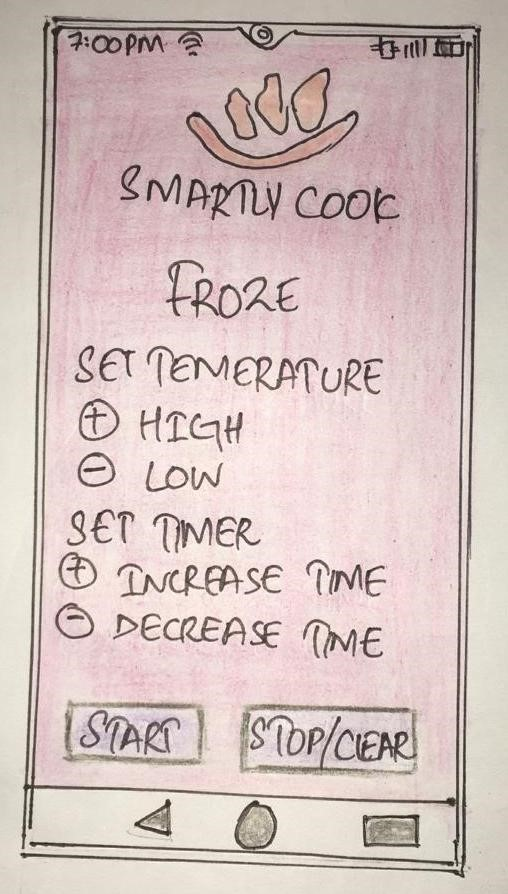 7:00PM
SMARTLY COOK
FROZE
SET TEMERATURE
+ HIGH
- LOW
SET TIMER
+ INCREASE TIME
- DECREASE TIME
START STOP/CLEAR